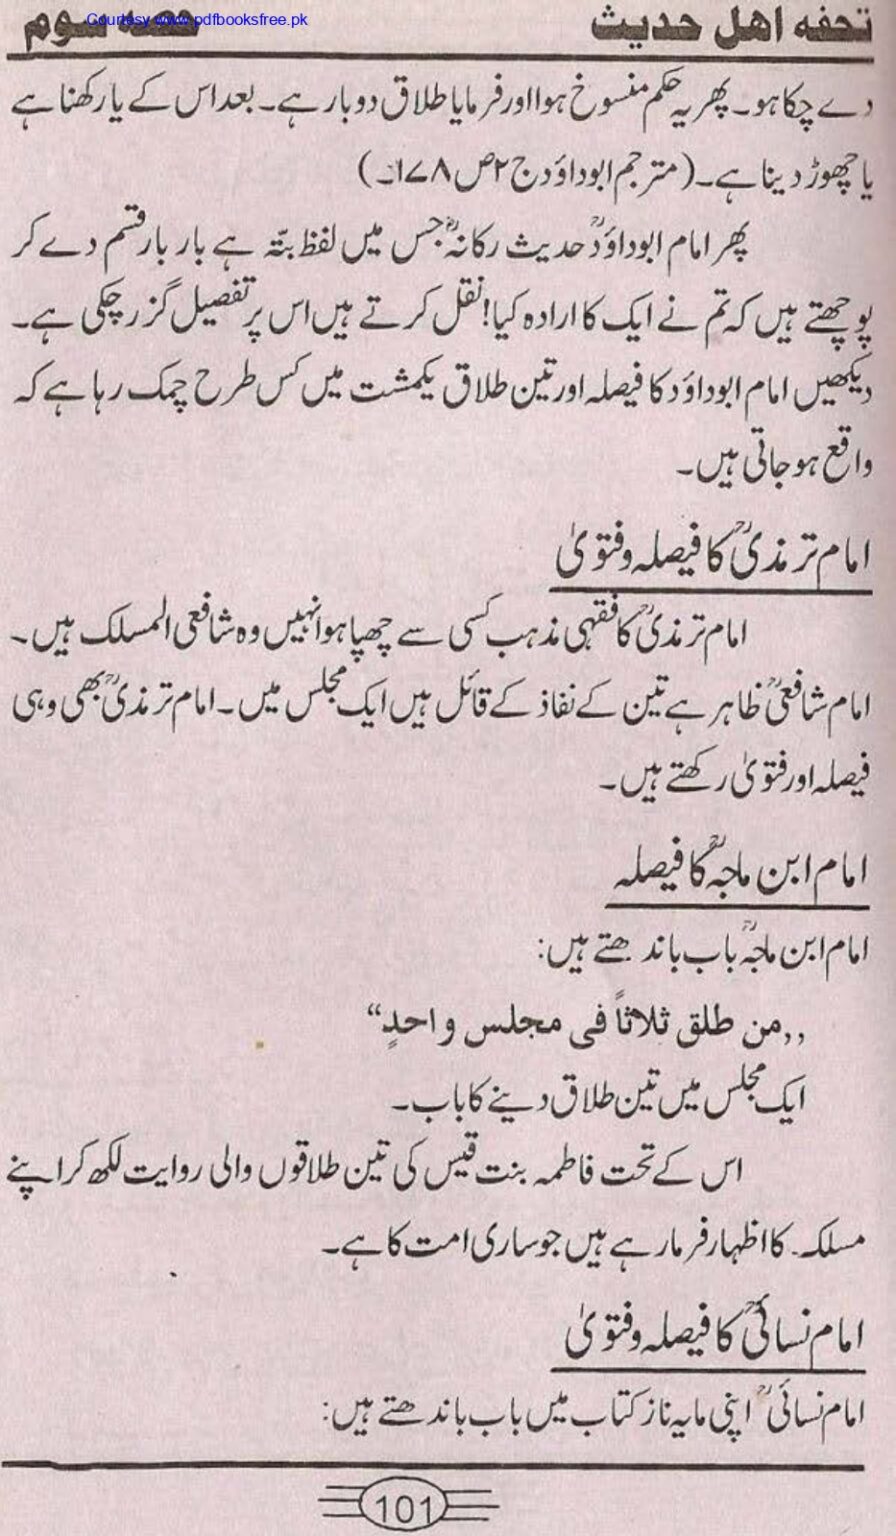 Courtesy www.pdfbooksfree.pk
تحفه اهل حديث حصه سوم
دے چکا ہو۔ پھر یہ حکم منسوخ ہوا اور فرمایا طلاق دو بار ہے۔ بعد اس کے یا رکھنا ہے
یا چھوڑ دینا ہے۔ (مترجم ابوداؤد ج ۲ ص ۱۷۸۔)
پھر امام ابوداؤدؒ حدیث رکانہؓ جس میں لفظ بتّہ ہے بار بار قسم دے کر
پوچھتے ہیں کہ تم نے ایک کا ارادہ کیا! نقل کرتے ہیں اس پر تفصیل گزر چکی ہے۔
دیکھیں امام ابوداؤد کا فیصلہ اور تین طلاق یکمشت میں کس طرح چمک رہا ہے کہ
واقع ہو جاتی ہیں۔
امام ترمذیؒ کا فیصلہ و فتویٰ
امام ترمذیؒ کا فقہی مذہب کسی سے چھپا ہوا نہیں وہ شافعی المسلک ہیں۔
امام شافعیؒ ظاہر ہے تین کے نفاذ کے قائل ہیں ایک مجلس میں۔ امام ترمذیؒ بھی وہی
فیصلہ اور فتویٰ رکھتے ہیں۔
امام ابن ماجہؒ کا فیصلہ
امام ابن ماجہؒ باب باندھتے ہیں:
,,من طلق ثلاثاً فی مجلس واحدٍ“
ایک مجلس میں تین طلاق دینے کا باب۔
اس کے تحت فاطمہ بنت قیس کی تین طلاقوں والی روایت لکھ کر اپنے
مسلک کا اظہار فرما رہے ہیں جو ساری امت کا ہے۔
امام نسائیؒ کا فیصلہ و فتویٰ
امام نسائیؒ اپنی مایہ ناز کتاب میں باب باندھتے ہیں:
101